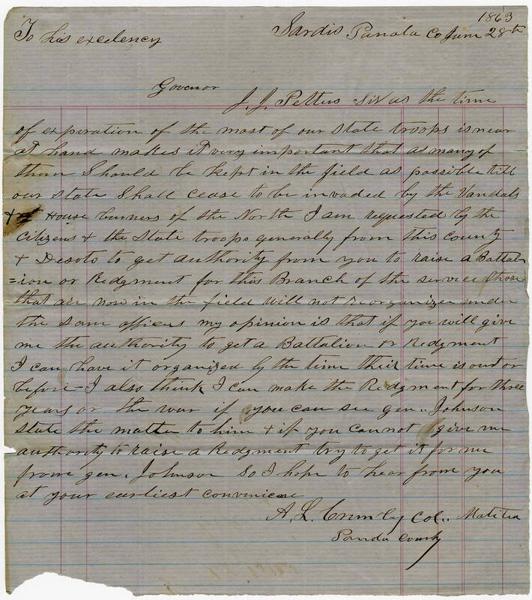 1863
To his excelency Sardis Panala Co June 28th
Govenor
J. J. Pettus Sir as the time
of expiration of the most of our State troops is near
at hand makes it very important that as many of
them Should be kept in the field as possible till
our State Shall cease to be invaded by the Vandals
& House burners of the North I am requested by the
Citizens & the State troops generally from this County
& Desoto to get authority from you to raise a Battal
=ion or Redgment for this Branch of the service those
that are now in the field will not reorganize under
the Same officers my opinion is that if you will give
me the authority to get a Battalion or Redgment
I can have it organized by the time their time is out or
before – I also think I can make the Redgment for three
years or the war if you can see gen.. Johnson
state the matter to him & if you cannot give me
authority to raise a Redgment try to get it for me
from gen. Johnson So I hope to hear from you
at your earliest
A. L. Col..
County